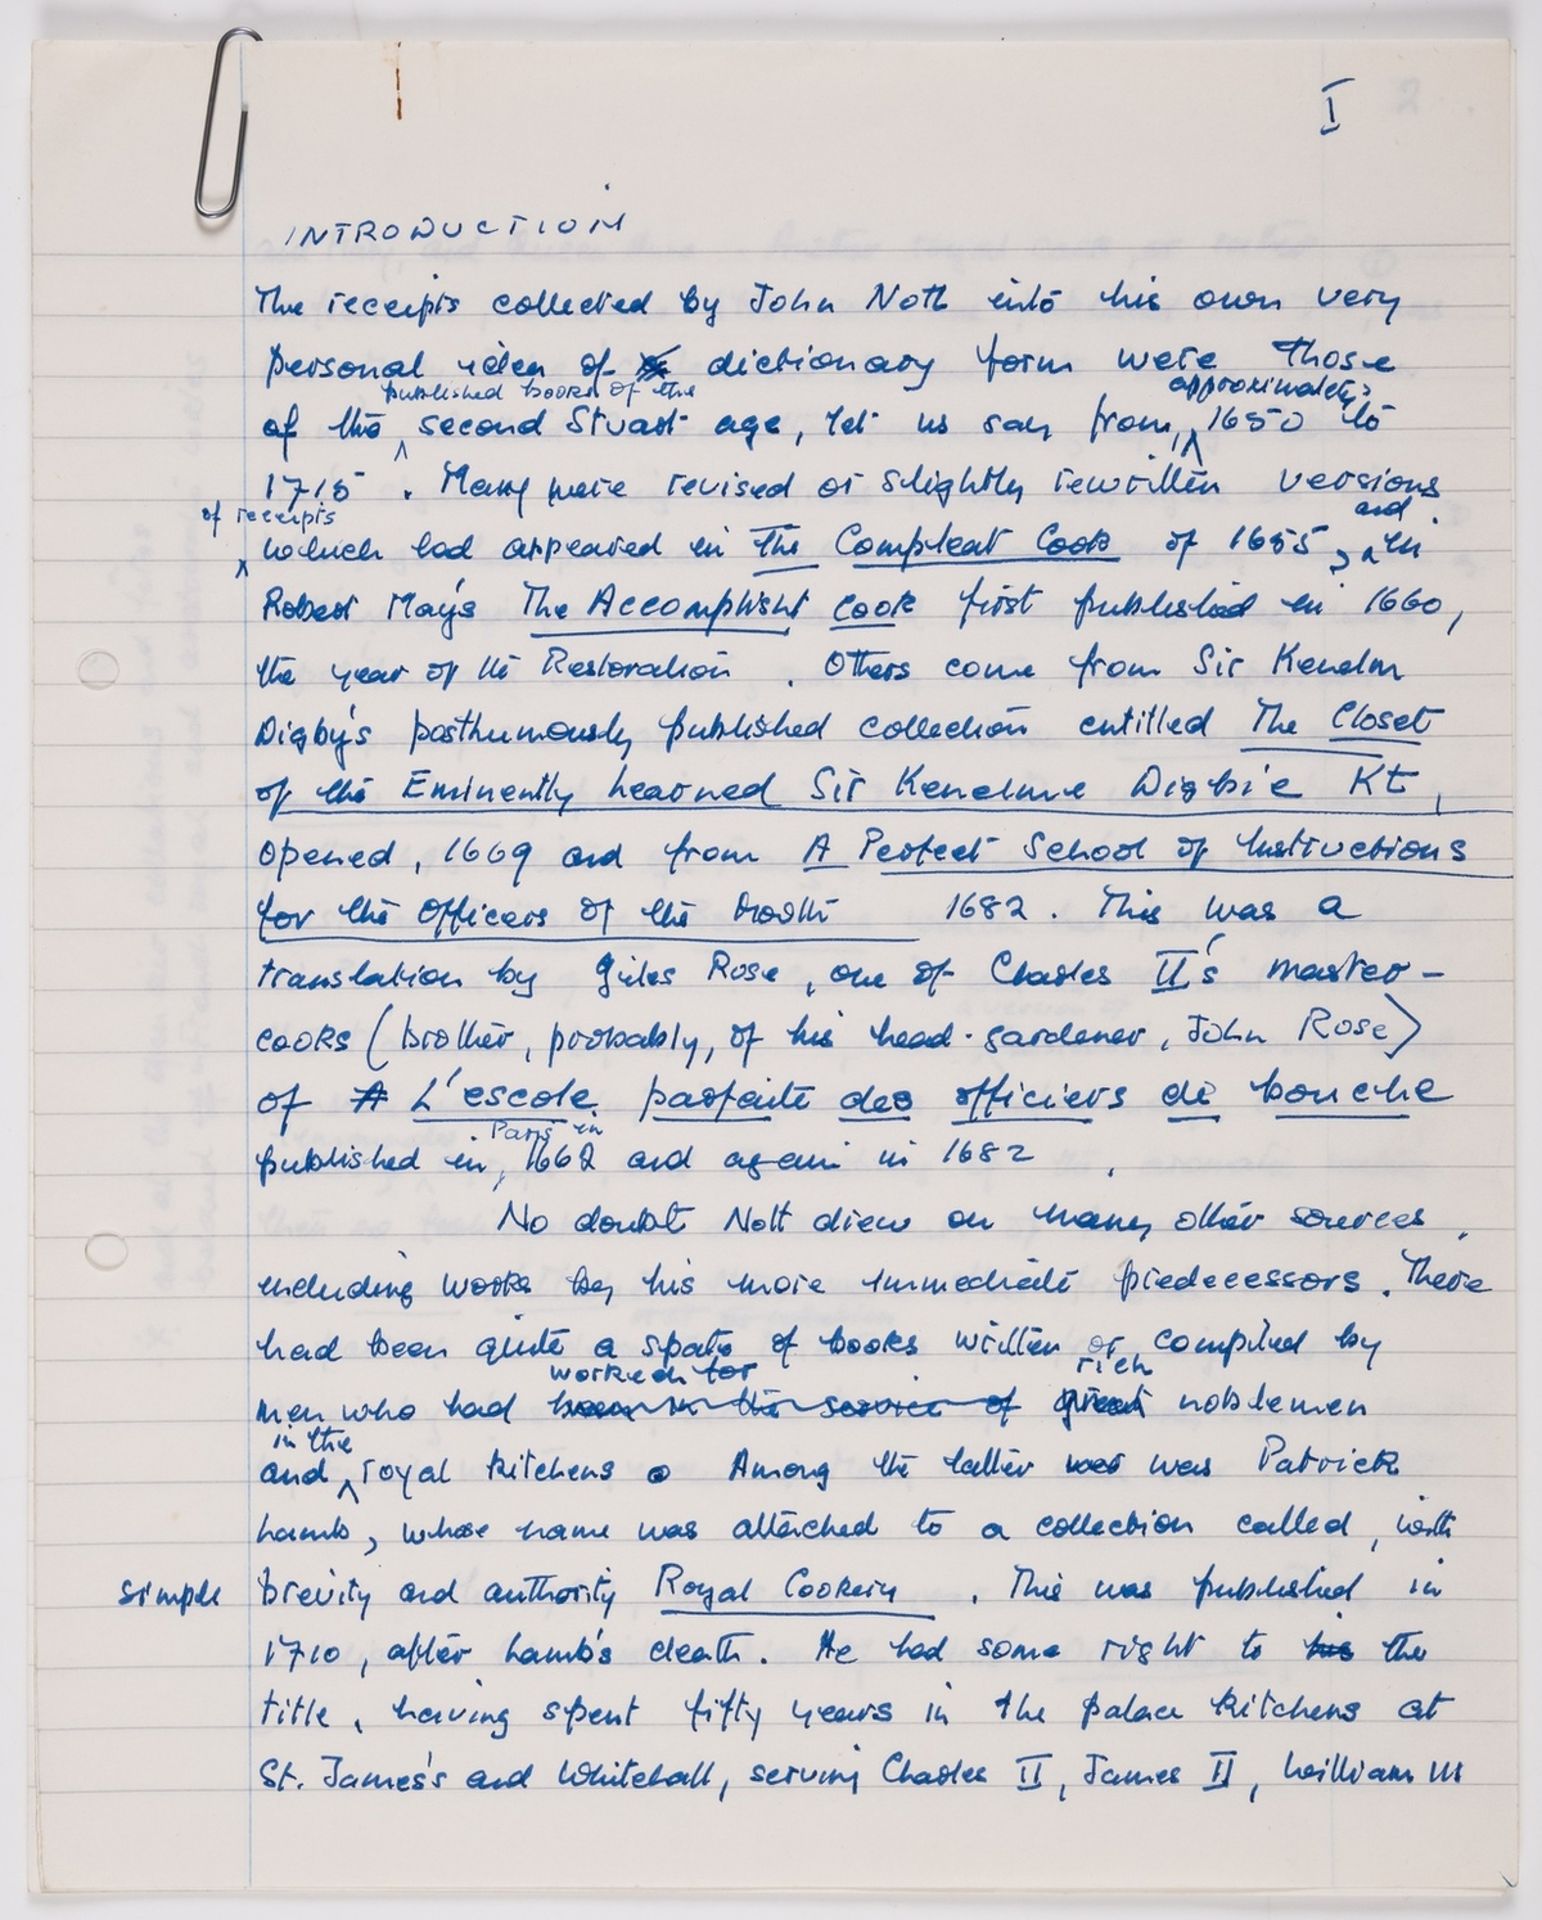 I
INTRODUCTION
The receipts collected by John Nott into his own very
personal idea of dictionary form were those
published books of the approximately
of the second Stuart age, let us say from, 1650 to
1715. Many were revised or slightly rewritten versions
of receipts and
which had appeared in The Compleat Cook of 1655, in
Robert May's The Accomplisht Cook first published in 1660,
the year of the Restoration. Others come from Sir Kenelm
Digby's posthumously published collection entitled The Closet
of the Eminently Learned Sir Kenelme Digbie Kt,
opened, 1669 and from A Perfect School of Instructions
for the Officers of the Mouth 1682. This was a
translation by Giles Rose, one of Charles II's master-
cooks (brother, probably, of his head-gardener, John Rose)
of A L'escole parfaite des officiers de bouche
Paris in
published in, 1662 and again in 1682.
No doubt Nott drew on many other sources,
including works by his more immediate predecessors. There
had been quite a spate of books written or compiled by
worked for rich
men who had been in the service of great noblemen
in the
and royal kitchens. Among the latter was was Patrick
Lamb, whose name was attached to a collection called, with
simple brevity and authority Royal Cookery. This was published in
1710, after Lamb's death. He had some right to his the
title, having spent fifty years in the palace kitchens at
St. James's and Whitehall, serving Charles II, James II, William III